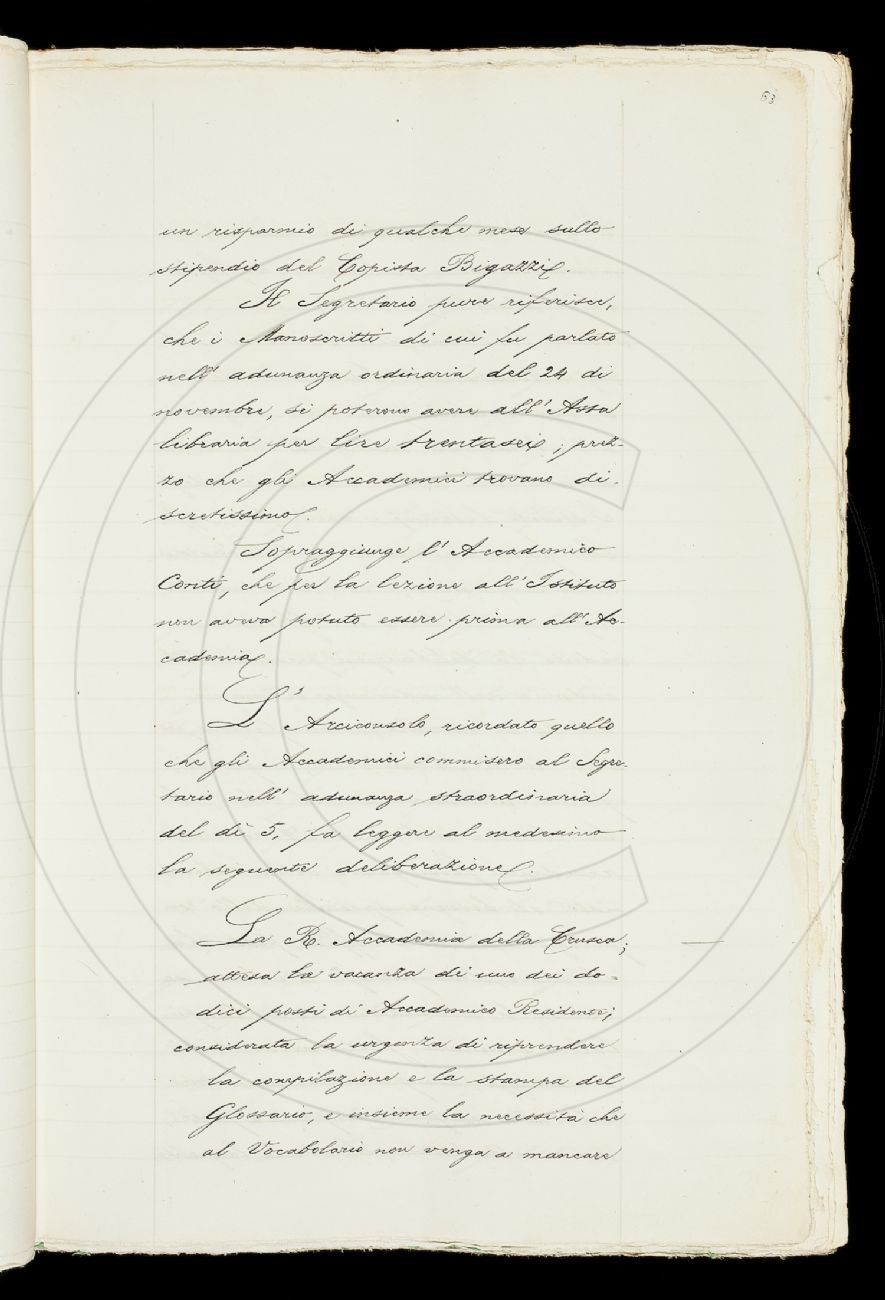 63
un risparmio di qualche mese sullo
stipendio del Copista Bigazzi.
Il Segretario pure riferisce,
che i Manoscritti di cui fu parlato
nell' adunanza ordinaria del 24 di
novembre, si poterono avere all' Asta
libraria per lire trentasei; prez-
zo che gli Accademici trovano di-
scretissimo.
Sopraggiunge l' Accademico
Conti, che per la lezione all' Istituto
non aveva potuto essere prima all' Ac-
cademia.
L' Arciconsolo, ricordato quello
che gli Accademici commisero al Segre-
tario nell' adunanza straordinaria
del dì 5, fa leggere al medesimo
la seguente deliberazione.
La R. Accademia della Crusca;
attesa la vacanza di uno dei do-
dici posti di Accademico Residente;
considerata la urgenza di riprendere
la compilazione e la stampa del
Glossario, e insieme la necessità che
al Vocabolario non venga a mancare